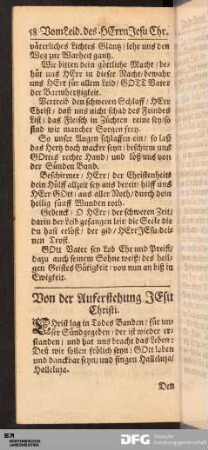 58 Vom Leid. des HErrn Jesu Chr.
väterliches Lichtes Glantz / lehr uns den
Weg zur Warheit gantz.
Wir bitten dein göttliche Macht / be-
hüt uns HErr in dieser Nacht / bewahr
uns HErr für allem Leid / GOTT Vater
der Barmhertzigkeit.
Vertreib den schweren Schlaff / HErr
Christ / daß uns nicht schad des Feindes
List / das Fleisch in Züchten reine sey / so
sind wir mancher Sorgen frey.
So unser Augen schlaffen ein / so laß
das Hertz doch wacker seyn / beschirm uns
GOttes rechte Hand / und löß uns von
der Sünden Band.
Beschirmer / HErr / der Christenheit
dein Hülff allzeit sey uns bereit / hilff uns
HErr GOtt / aus aller Noth / durch dein
heilig fünff Wunden roth.
Gedenck / O HErr / der schweren Zeit /
darin der Leib gefangen leit / die Seele die
du hast erlöst / der gib / HErr JEsu dei-
nen Trost.
GOtt Vater sey Lob Ehr und Preiß /
dazu auch seinem Sohne weiß / des hei-
ligen Geistes Gütigkeit / von nun an biß in
Ewigkeit.
Von der Auferstehung JEsu
Christi.
CHrist lag in Todes Banden / für un-
ser Sünd gegeben / der ist wieder er-
standen / und hat uns bracht das Leben:
Deß wir sollen frölich seyn / GOtt loben
und danckbar seyn / und singen Halleluja /
Halleluja.
Den
DFG Deutsche
Forschungsgemeinschaft